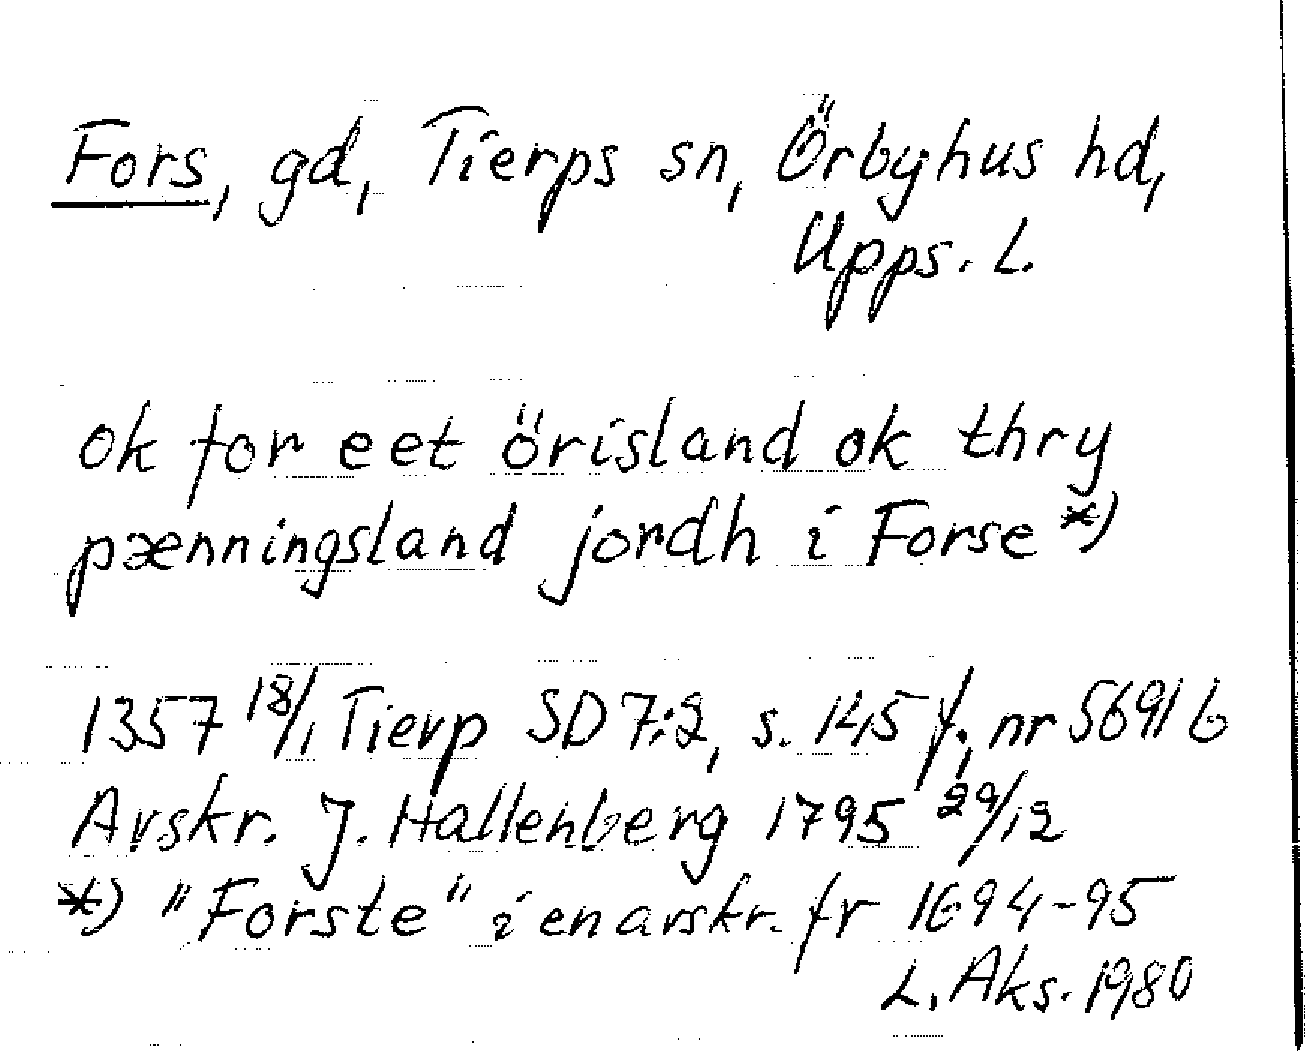 Fors, gd, Tierps sn, Örbyhus hd,
Upps. L.
ok for eet örisland ok thry
pænningsland jordh i Forse *)
1357 18/1 Tierp SD 7:2, s. 145 f., nr 5691 b
Avskr. J. Hallenberg 1795 29/12
*) "Forste" i en avskr. fr 1694-95
L. Aks. 1980